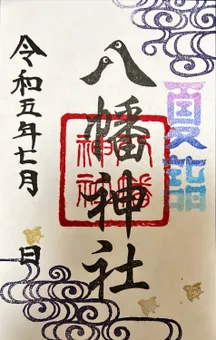 夏詣
八幡神社
八幡神社
令和五年七月 日